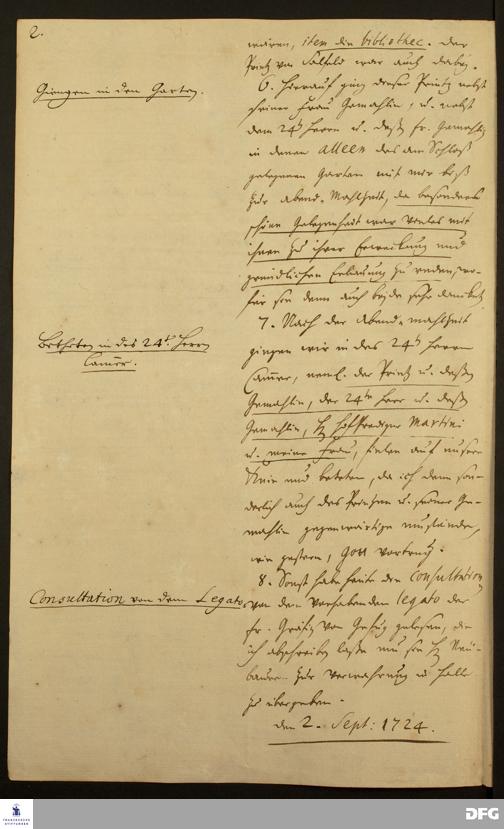 2.
waren, item die bibliothec. Der
Printz von Salfeld war auch dabey.
Giengen in den Garten.
6. Hierauf ging dieser Printz nebst
seiner Frau Gemahlin, u. nebst
dem 24t Herrn u. deßen fr. Gemahlin
in denen alleen des am Schloß
gelegenen Garten mit mir biß
zur Abend-Mahlzeit, da besonders
schöne Gelegenheit war vieles mit
ihnen zu ihrer Erweckung und
gründlichen Erbauung zu reden, wo-
für sie denn auch beyde sehr danckten.
Beteten in des 24t. Herrn
Camer.
7. Nach der Abend-mahlzeit
gingen wir in des 24t Herrn
Camer, neml. der Printz u. deßen
Gemahlin, der 24te Herr u. deßen
Gemahlin, H. Hofprediger Martini
u. meine Frau, fielen auf unsere
Knie und beteten, da ich denn son-
derlich auch des Printzen u. seiner Ge-
mahlin gegenwärtige umstände,
wie gestern, Gott vortrug.
Consultation von dem Legato
8. Sonst habe heute die Consultation
von dem vorhabenden legato der
fr. Gräfin von gelesen, die
ich abschreiben laße um sie H. Neu-
bauer zur Verwahrung in Halle
zu übergeben.
den 2. Sept: 1724.
FRANCKESCHE STIFTUNGEN
DFG